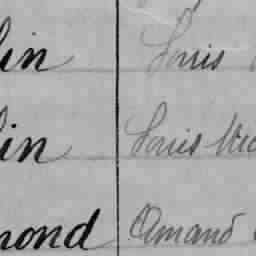 lin Louis
lin Louis Vic
mond Amand